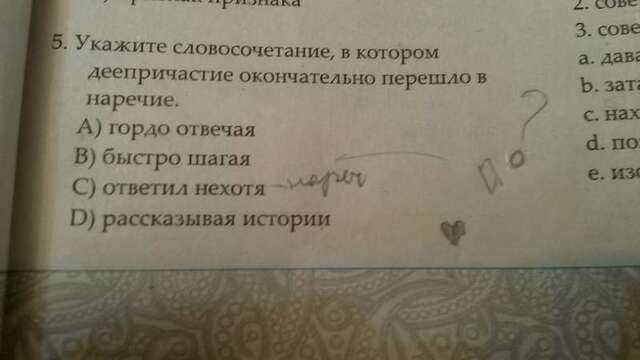 5. Укажите словосочетание, в котором
деепричастие окончательно перешло в
наречие.
A) гордо отвечая
B) быстро шагая
C) ответил нехотя
D) рассказывая истории
?
3. сове
a. дава
b. зата
c. нах
d. по
e. изо